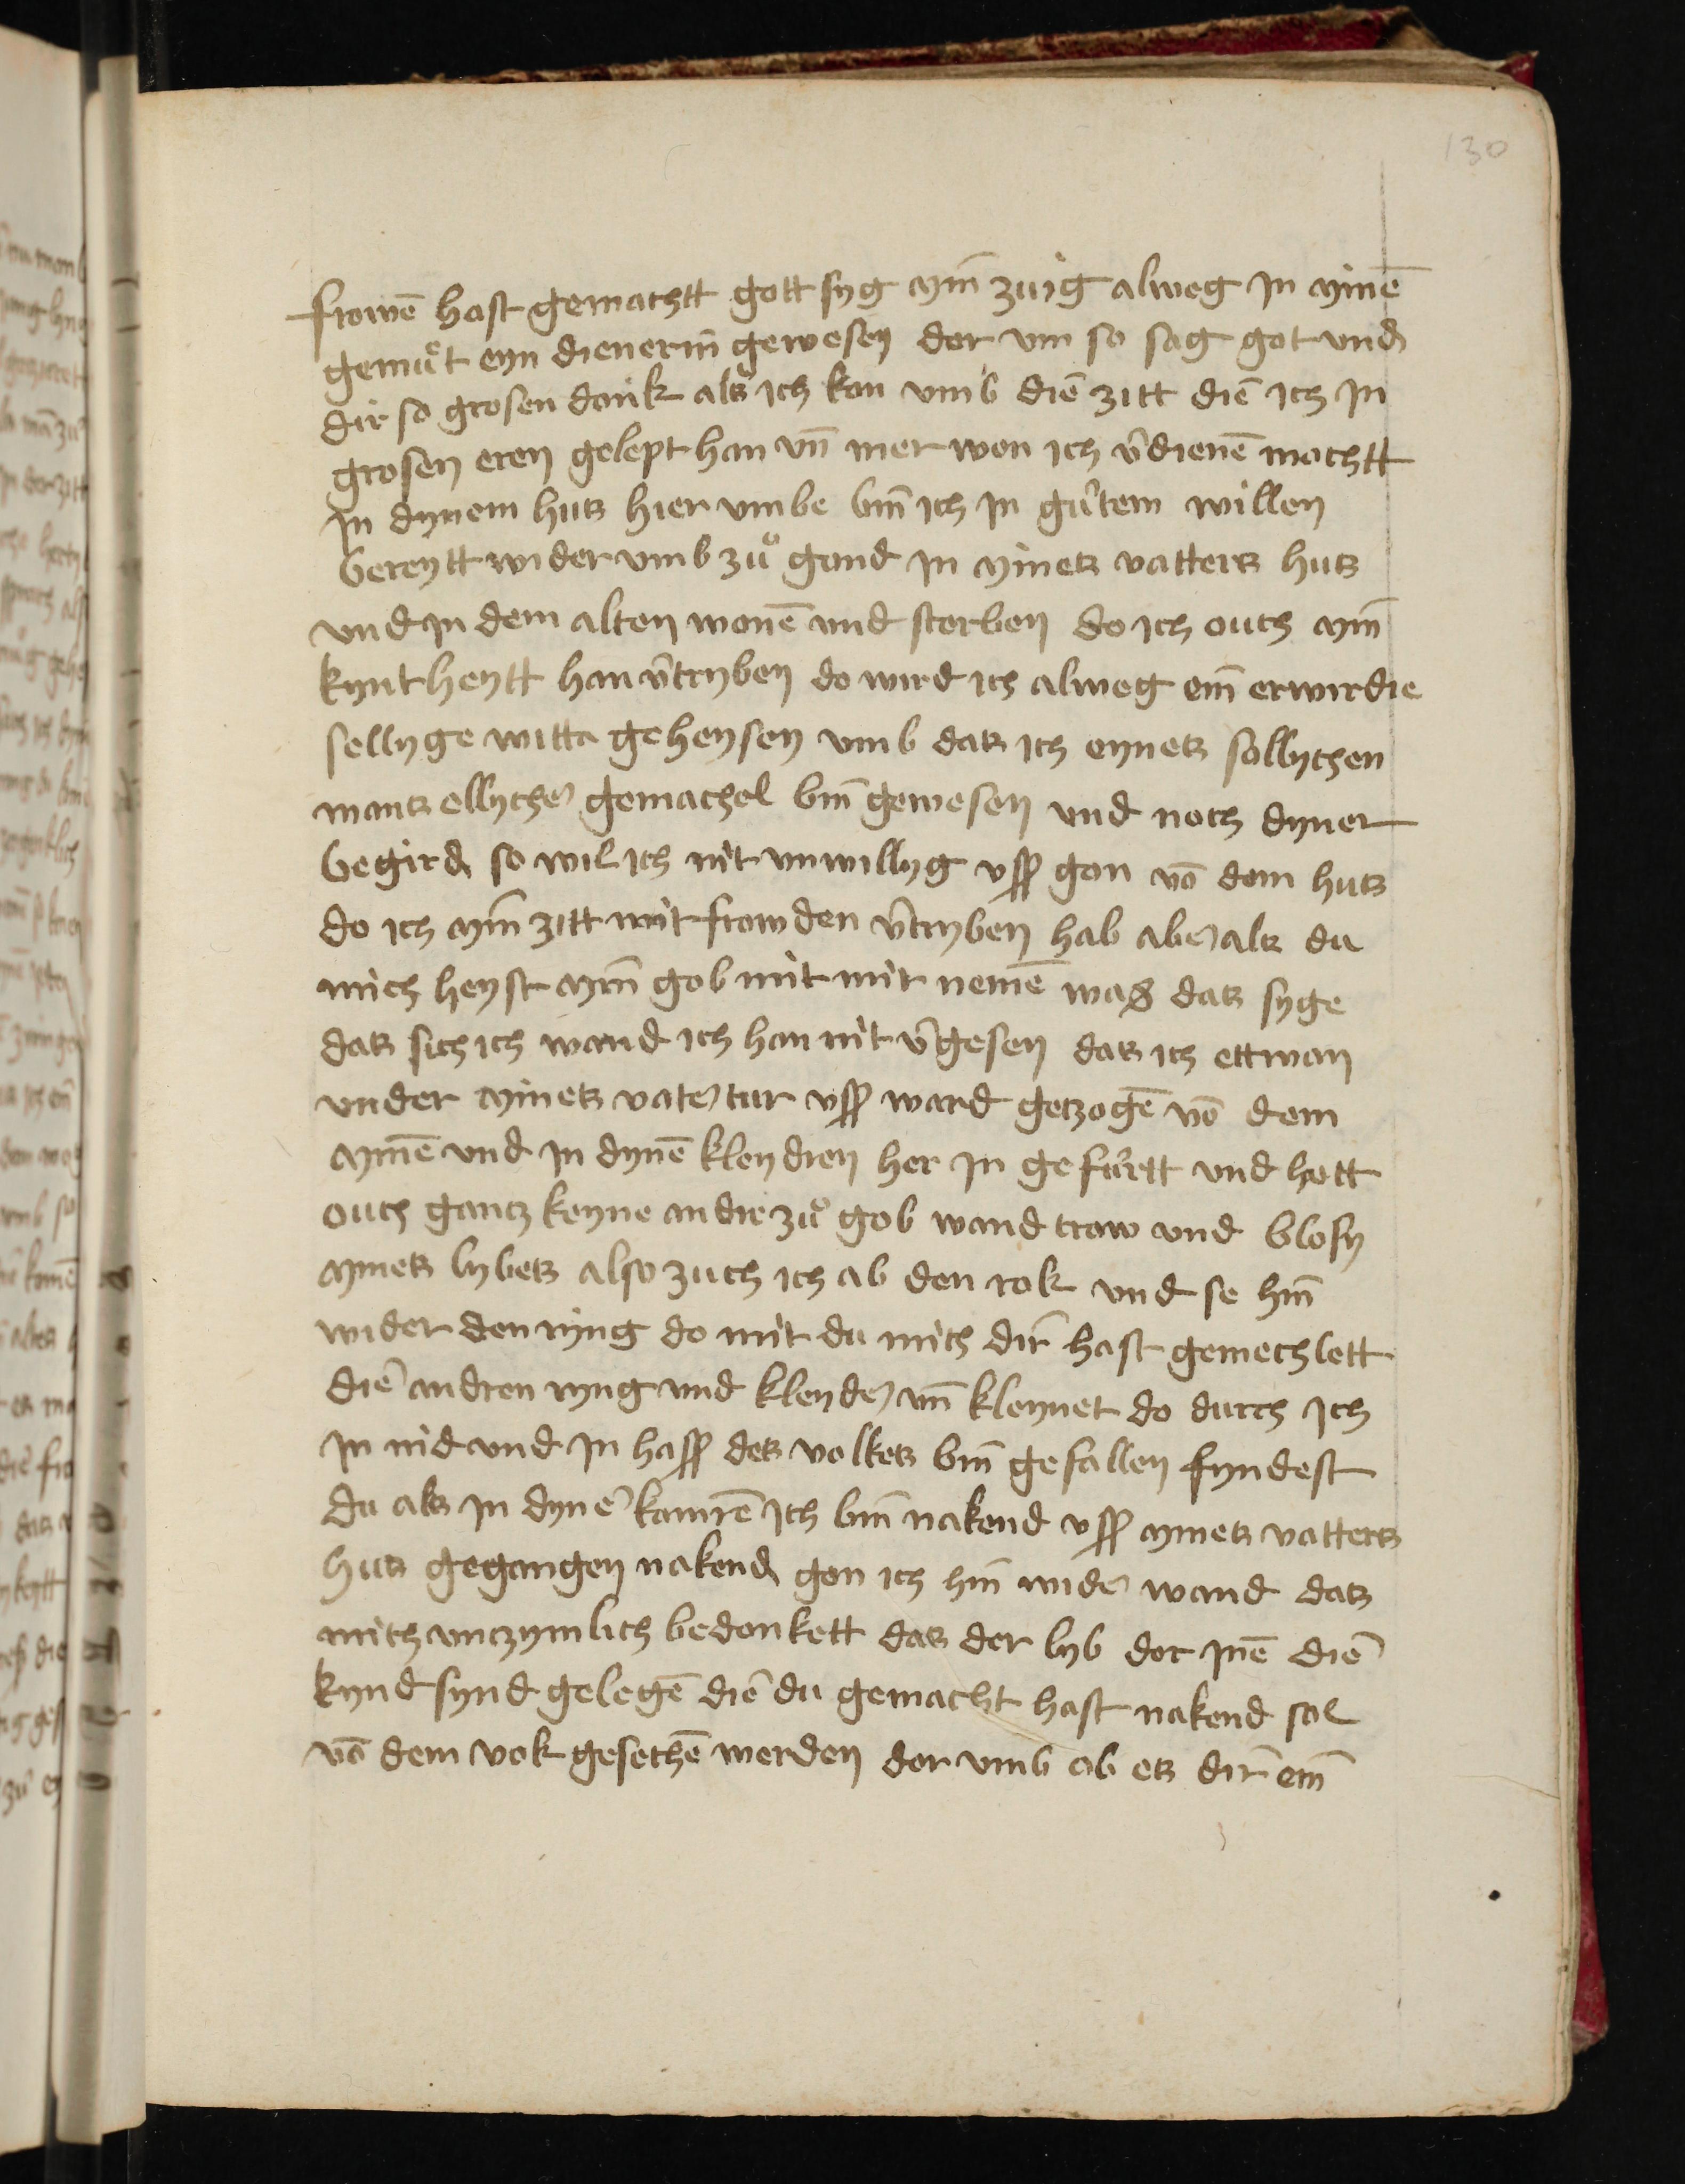 130
frowē hast gemachtt gott syg mȳn zùig alweg Jn mȳnē
gemuͤt eyn dienerīn gewesen dor vm so sag got vnd
dir so grosen donk alß ich kan vmb diē zitt diē ich Jn
grosen eren gelept han vn̄ mer won ich v̄dienē mochtt
Jn dynem huß hier vmbe bīn ich Jn gůtem willen
bereytt wider vmb zuͦ gond Jn mȳneß vatterß huß
vnd Jn dem alten wonē vnd sterben do ich ouch mȳn
kyntheytt han v̄tryben do wird ich alweg ein̄ erwirdie
sellyge witta geheysen vmb daß ich eyneß sollychen
manß ellycher gemachel bīn gewesen vnd noch dyner
begird so wil ich nit vnwillyg vſſ gon vō dem huß
do ich mȳn zitt mit frowden v̄tryben hab aber alß du
mich heyst mȳn gob mit mir nemē waß daß syge
daß sich ich wand ich han nit v̄gesen daß ich ettwan
vnder mȳneß vater tur vſſ ward getzogē vō dem
mȳnē vnd Jn dynē kleydren her Jn gefürtt vnd hott
ouch gantz keyne andre zuͦ gob wand trow vnd blosy
mȳneß lybeß also zuch ich ab den rok vnd se hīn
wider den ryng do mit du mich dir hast gemechlett
diē andren ryng vnd kleyder vn̄ kleynet do durch Jch
Jn nid vnd Jn haſſ deß volkeß bīn gefallen fyndest
du alß Jn dyner kamrē Jch bīn nakend vſſ mȳneß vatterß
huß gegangen nakend gon ich hīn wider wand daß
mich vnczymlich bedonkett daß der lyb dor Jnē diē
kynd synd gelegē diē du gemacht hast nakend sol
vō dem vok gesechē werden dor vmb ob eß dir ein̄